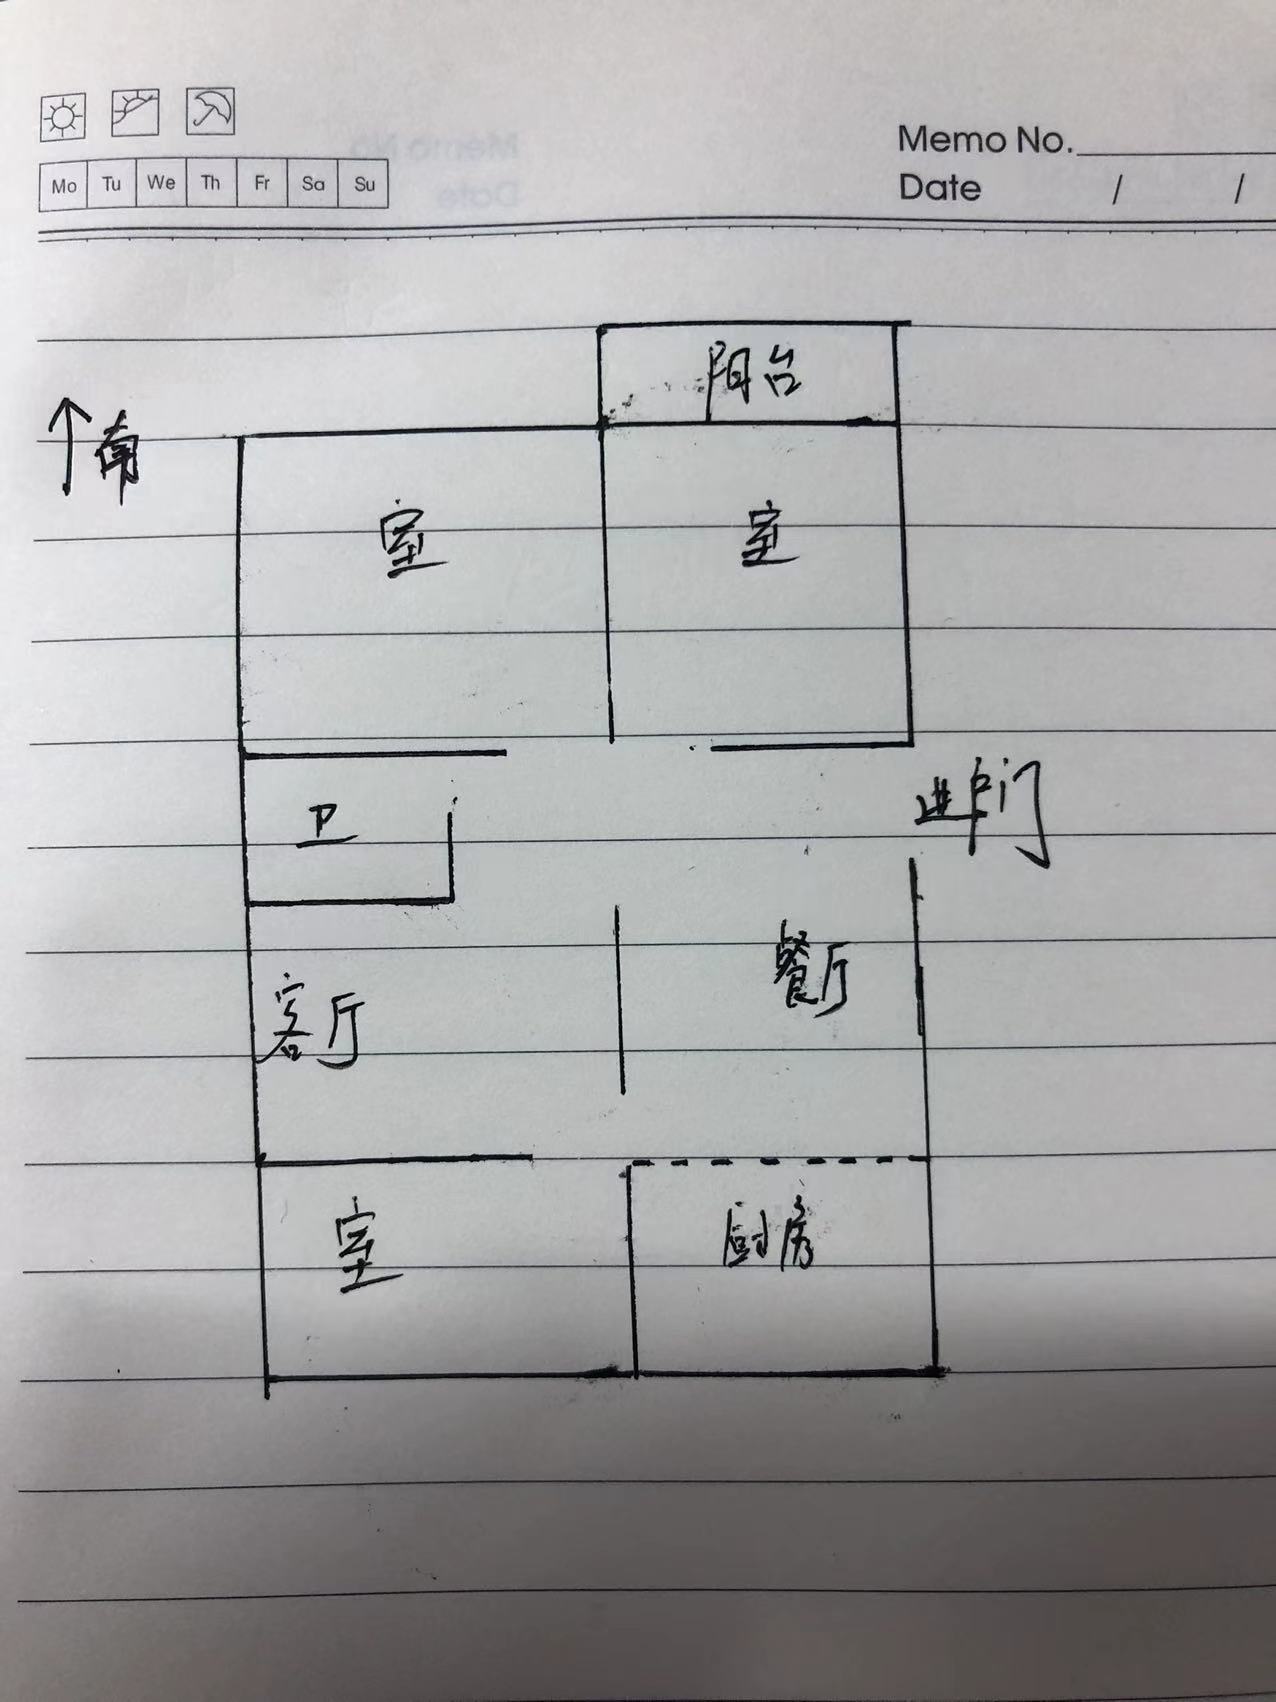 Mo Tu We Th Fr Sa Su
Memo No.
Date / /
阳台
↑南
室 室
进户门
卫
餐厅
客厅
室 厨房